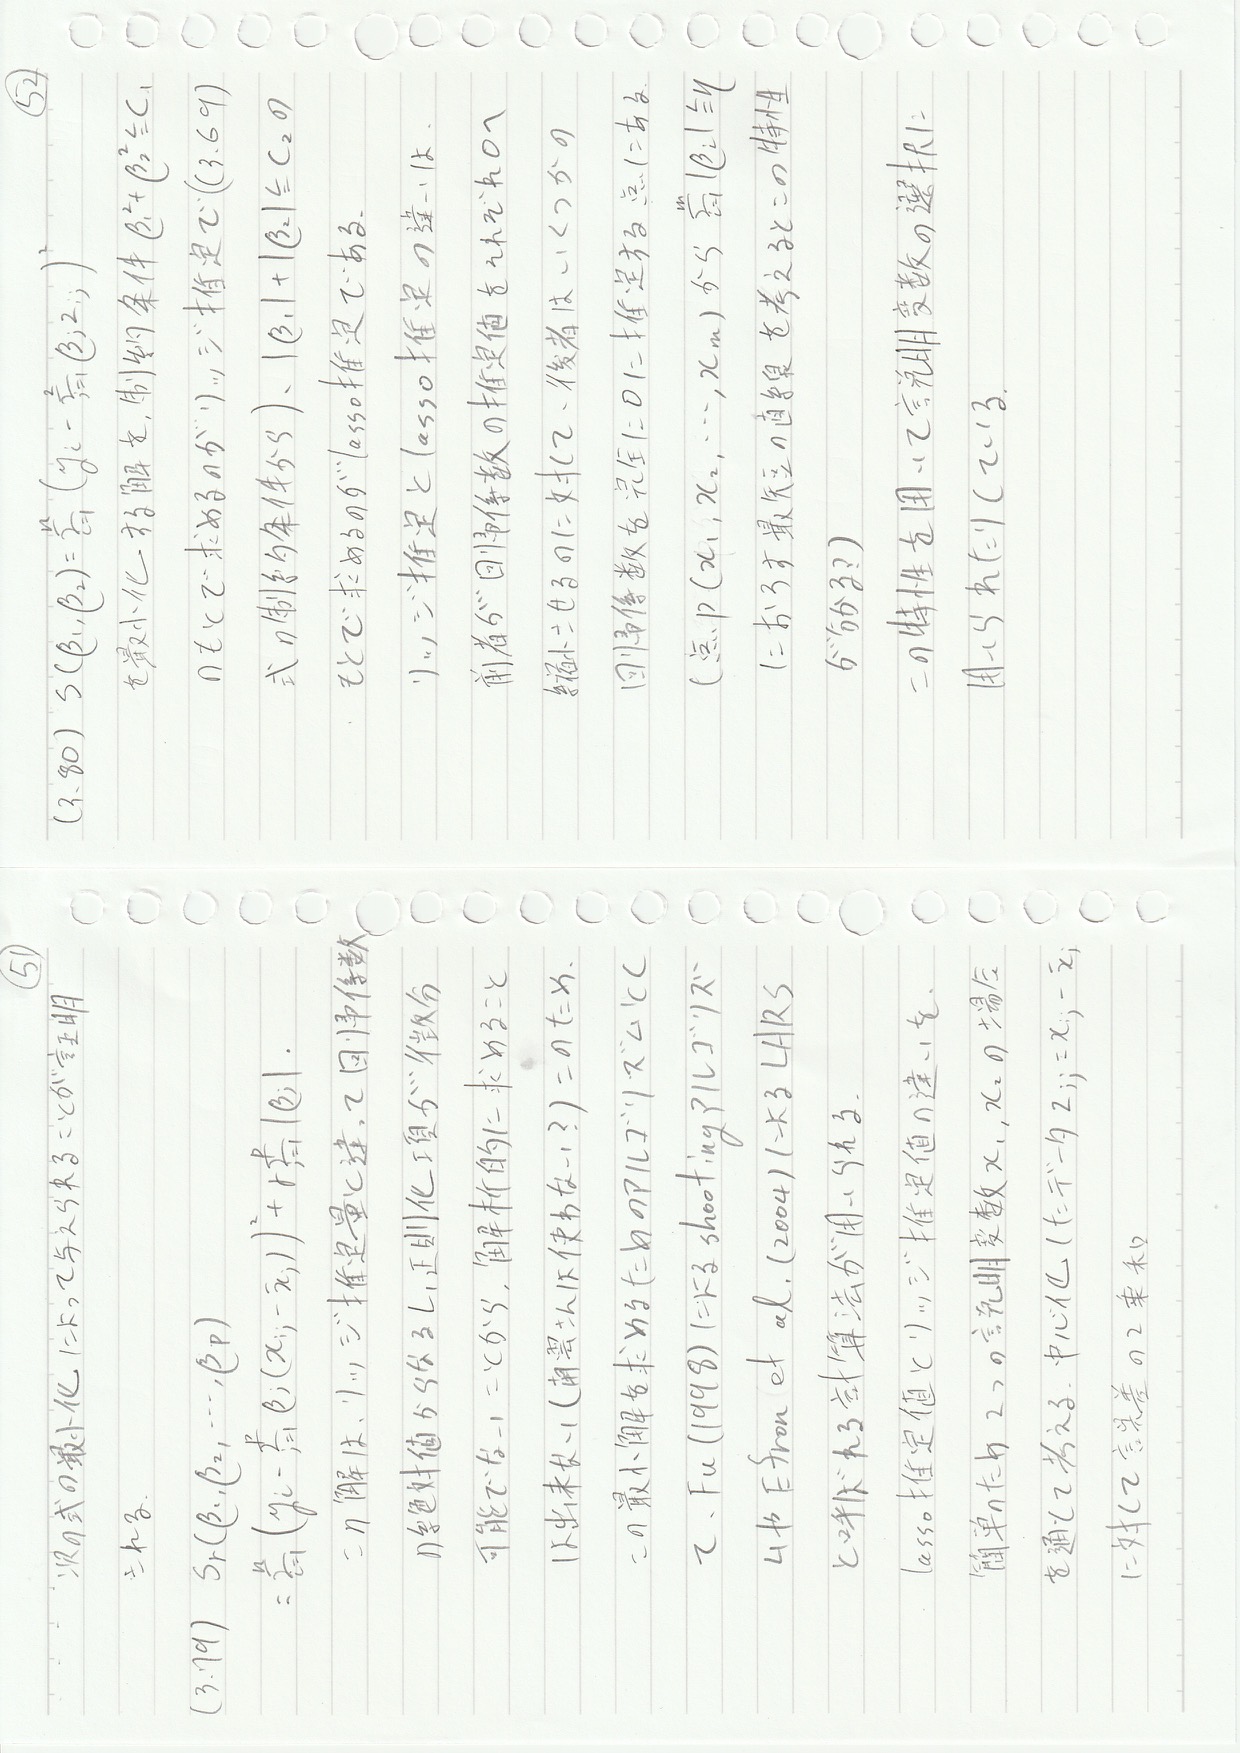 51
次の式の最小化によって与えられることが証明
される.
(3.79) Sr(β1,β2,…,βp)
=Σ^n_{i=1}(yi-Σ^p_{j=1}βj(xij-x̄j))²+rΣ^p_{j=1}|βj|.
この解は、リッジ推定量と違って回帰係数
の絶対値からなるL1正則化項が微分
可能でないことから、解析的に求めること
は出来ない(南雲さんは使わない?)このため、
この最小解を求めるためのアルゴリズムとし
て、Fu(1998)によるshootingアルゴリズ
ムやEfron et al.(2004)によるLARS
と呼ばれる計算法が用いられる.
lasso推定値とリッジ推定値の違いを、
簡単のため2つの説明変数x1,x2の場合
を通して考える.中心化したデータzij=xij-x̄j
に対して誤差の2乗和
52
(3.80) S(β1,β2)=Σ^n_{i=1}(yi-Σ^2_{j=1}βjzij)²
を最小化する解を,制約条件β1²+β2²≦C1
のもとで求めるのがリッジ推定で((3.69)
式の制約条件から)、|β1|+|β2|≦C2の
もとで求めるのがlasso推定である.
リッジ推定とlasso推定の違いは、
前者が回帰係数の推定値をそれぞれ0へ
縮小させるのに対して、後者はいくつかの
回帰係数を完全に0に推定する点にある.
(点P(x1,x2,…,xm)からΣ^m_{i=1}|βi|≦η
におろす最短の直線を考えるとこの特性
が分かる?)
この特性を用いて説明変数の選択に
用いられたりしている.